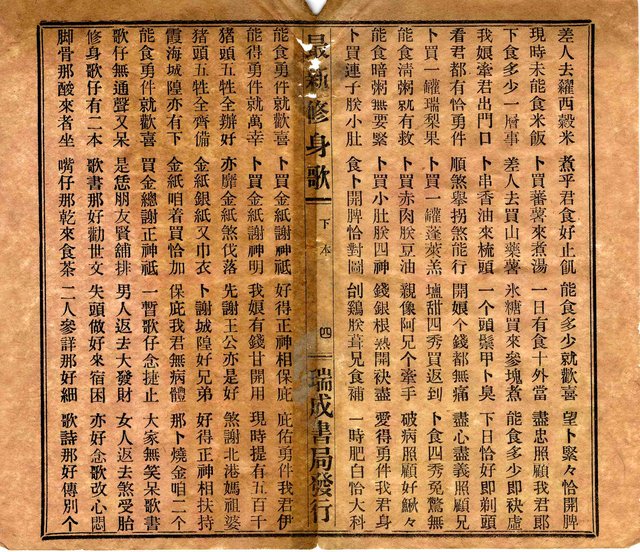 差人去糴西穀米 煮乎君食好止飢 能食多少就歡喜 望卜緊々恰開脾
現時未能食米飯 卜買蕃薯來煮湯 一日有食十外當 盡忠照顧我君郎
下食多少一層事 差人去買山藥薯 氷糖買來參塊煮 能食多少即袂虛
我娘牽君出門口 卜串香油來梳頭 一个頭鬃甲卜臭 下日恰好即剃頭
看君都有恰勇件 順煞舉拐煞能行 開娘个錢都無痛 盡心盡義照顧兄
卜買一罐瑞梨果 卜買一罐蓬萊羔 塭甜四秀買返到 卜食四秀免驚無
能食淸粥就有救 卜買赤肉朕豆油 親像阿兄个牽手 破病照顧好鰍々
能食暗粥無要緊 卜買小肚朕四神 錢銀根熱開袂盡 愛得勇件我君身
卜買連子朕小肚 食卜開脾恰對圖 刣鷄朕葺兄食補 一時肥白恰大科
最新修身歌 下本 四 瑞成書局發行
能食勇件就歡喜 卜買金紙謝神祗 好得正神相保庇 庇佑勇件我君伊
能得勇件就萬幸 卜買金紙謝神明 我娘有錢甘開用 現時提有五百千
猪頭五牲全辦好 亦靡金紙煞伐落 先謝王公亦是好 煞謝北港媽祖婆
猪頭五牲全齊備 金紙銀紙又巾衣 卜謝城隍好兄弟 好得正神相扶持
霞海城隍亦有下 金紙咱着買恰加 保庇我君無病體 那卜燒金咱二个
能食勇件就歡喜 買金總謝正神祗 一暫歌仔念捷止 大家無笑呆歌書
歌仔無通聲又呆 是恁朋友賢舖排 男人返去大發財 女人返去煞受胎
修身歌仔有二本 歌書那好勸世文 失頭做好來宿困 亦好念歌改心悶
脚骨那酸來者坐 嘴仔那乾來食茶 二人參詳那好細 歌詩那好傳別个